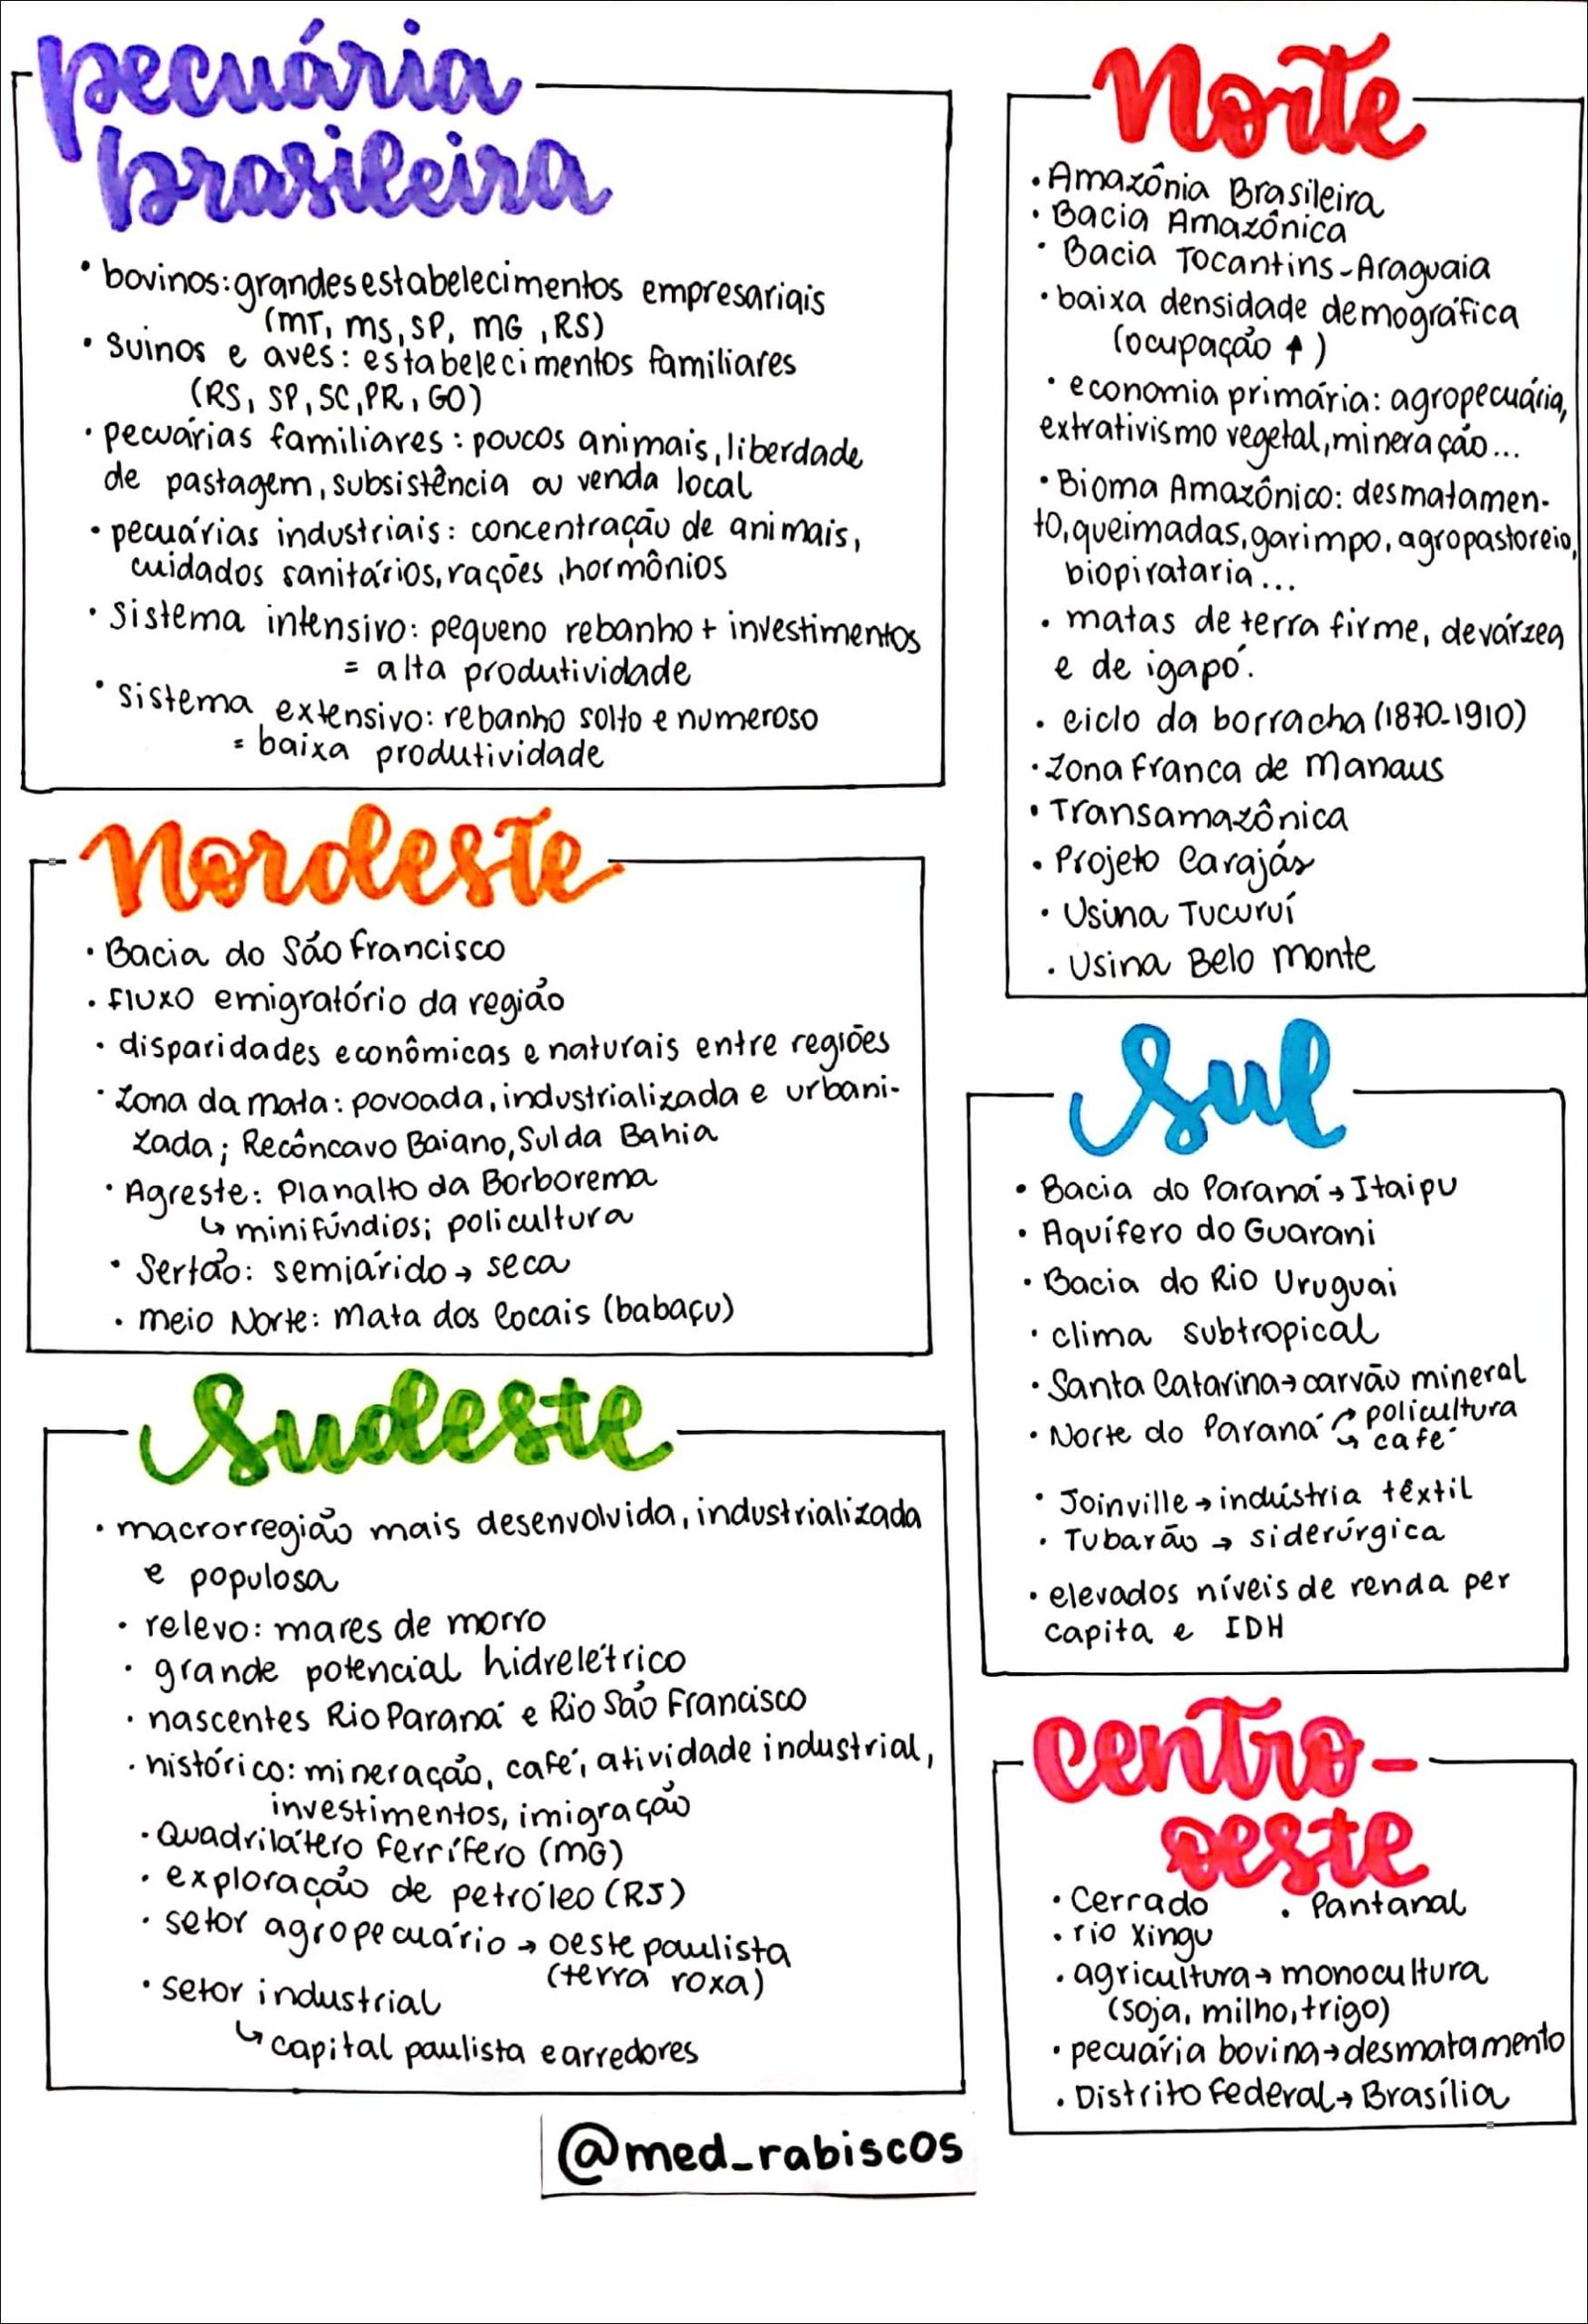 pecuária
brasileira
• bovinos: grandes estabelecimentos empresariais
(MT, MS, SP, MG, RS)
• suinos e aves: estabelecimentos familiares
(RS, SP, SC, PR, GO)
• pecuárias familiares: poucos animais, liberdade
de pastagem, subsistência ou venda local
• pecuárias industriais: concentração de animais,
cuidados sanitários, rações, hormônios
• sistema intensivo: pequeno rebanho + investimentos
= alta produtividade
• sistema extensivo: rebanho solto e numeroso
= baixa produtividade
Nordeste
• Bacia do São Francisco
• fluxo emigratório da região
• disparidades econômicas e naturais entre regiões
• Zona da Mata: povoada, industrializada e urbani-
zada; Recôncavo Baiano, Sul da Bahia
• Agreste: Planalto da Borborema
↳ minifúndios; policultura
• Sertão: semiárido → seca
• Meio Norte: Mata dos Cocais (babaçu)
Sudeste
• macrorregião mais desenvolvida, industrializada
e populosa
• relevo: mares de morro
• grande potencial hidrelétrico
• nascentes Rio Paraná e Rio São Francisco
• histórico: mineração, café, atividade industrial,
investimentos, imigração
• Quadrilátero Ferrífero (MG)
• exploração de petróleo (RJ)
• setor agropecuário → oeste paulista
(terra roxa)
• setor industrial
↳ capital paulista e arredores
Norte
• Amazônia Brasileira
• Bacia Amazônica
• Bacia Tocantins-Araguaia
• baixa densidade demográfica
(ocupação ↑)
• economia primária: agropecuária,
extrativismo vegetal, mineração...
• Bioma Amazônico: desmatamen-
to, queimadas, garimpo, agropastoreio,
biopirataria...
• matas de terra firme, de várzea
e de igapó.
• ciclo da borracha (1870-1910)
• Zona Franca de Manaus
• Transamazônica
• Projeto Carajás
• Usina Tucuruí
• Usina Belo Monte
Sul
• Bacia do Paraná → Itaipu
• Aquífero do Guarani
• Bacia do Rio Uruguai
• clima subtropical
• Santa Catarina → carvão mineral
• Norte do Paraná ↱ policultura
↳ café
• Joinville → indústria têxtil
• Tubarão → siderúrgica
• elevados níveis de renda per
capita e IDH
Centro-
oeste
• Cerrado • Pantanal
• rio Xingu
• agricultura → monocultura
(soja, milho, trigo)
• pecuária bovina → desmatamento
• Distrito Federal → Brasília
@med_rabiscos